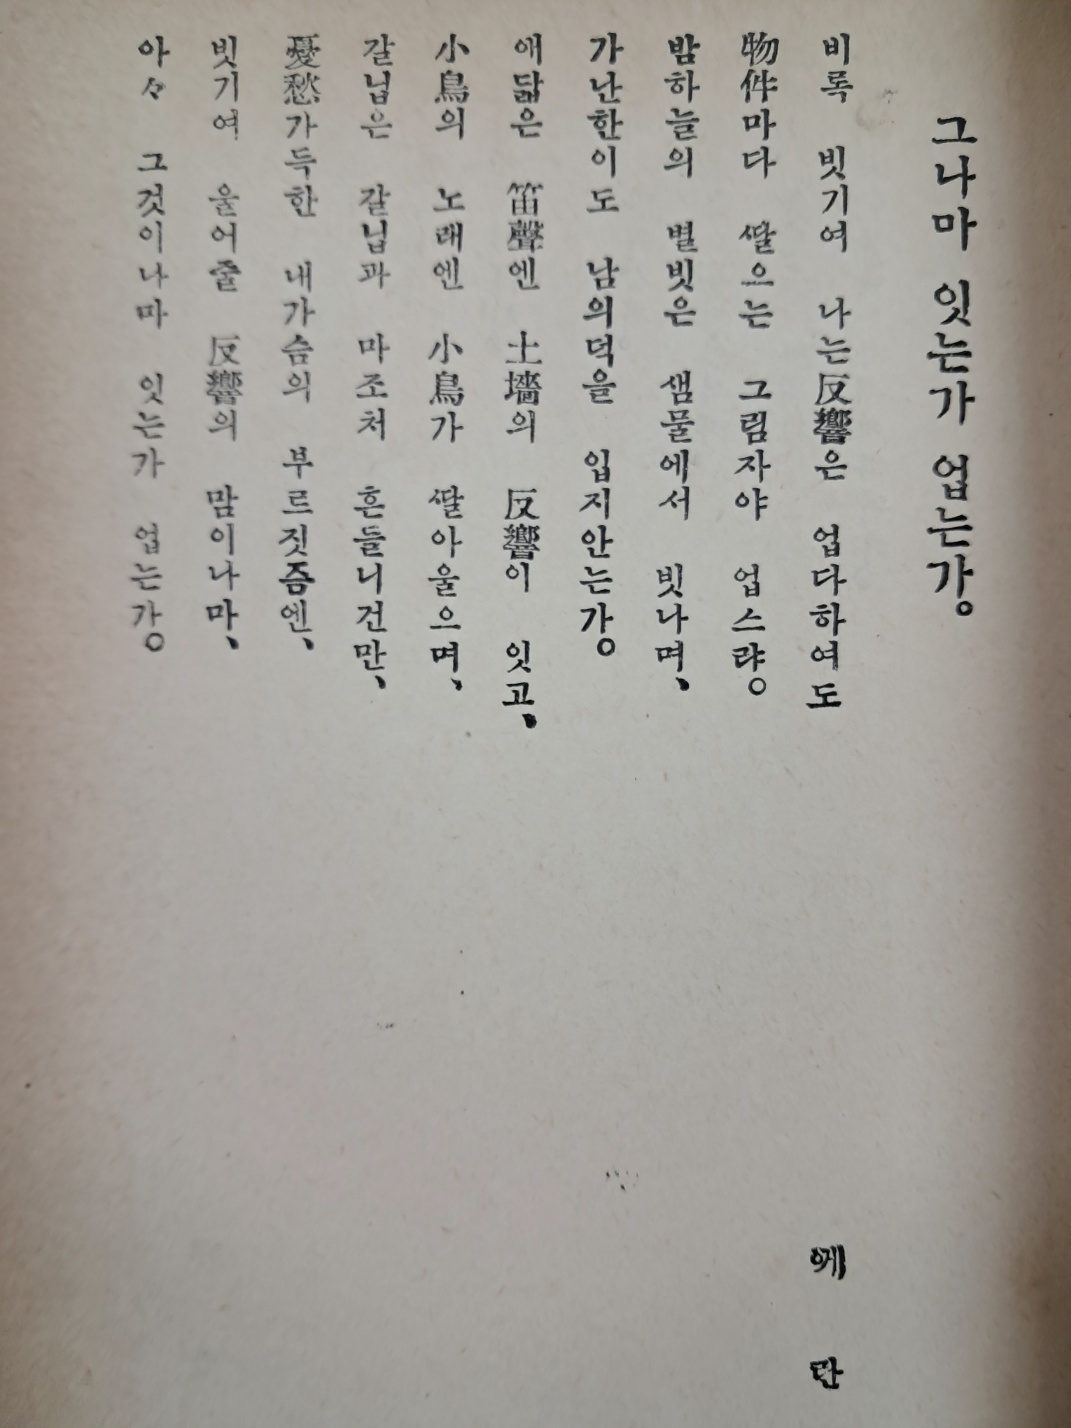 그나마 잇는가 업는가。
에 탄
비록 빗기여 나는反響은 업다하여도
物件마다 ᄯᅡᆯ으는 그림자야 업스랴。
밤하늘의 별빗은 샘물에서 빗나며、
가난한이도 남의덕을 입지안는가。
애닯은 笛聲엔 土墻의 反響이 잇고、
小鳥의 노래엔 小鳥가 ᄯᅡᆯ아울으며、
갈닙은 갈닙과 마조처 흔들니건만、
憂愁가득한 내가슴의 부르짓즘엔、
빗기여 울어줄 反響의 맘이나마、
아々 그것이나마 잇는가 업는가。